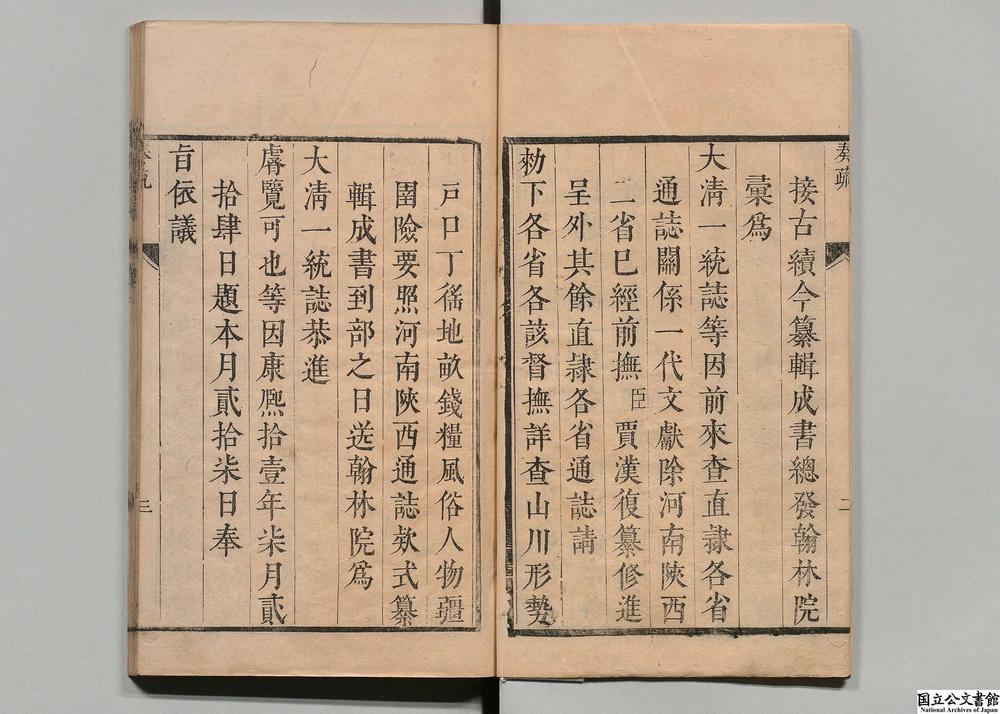 奏疏
接古續今纂輯成書總發翰林院
彙爲
大淸一統誌等因前來查直隸各省
通誌關係一代文獻除河南陝西
二省已經前撫臣賈漢復纂修進
呈外其餘直隸各省通誌請
勑下各省各該督撫詳查山川形勢
二
戸口丁徭地畝錢糧風俗人物疆
圉險要照河南陝西通誌欵式纂
輯成書到部之日送翰林院爲
大淸一統誌恭進
睿覽可也等因康熙拾壹年柒月貳
拾肆日題本月貳拾柒日奉
旨依議
三
国立公文書館
National Archives of Japan